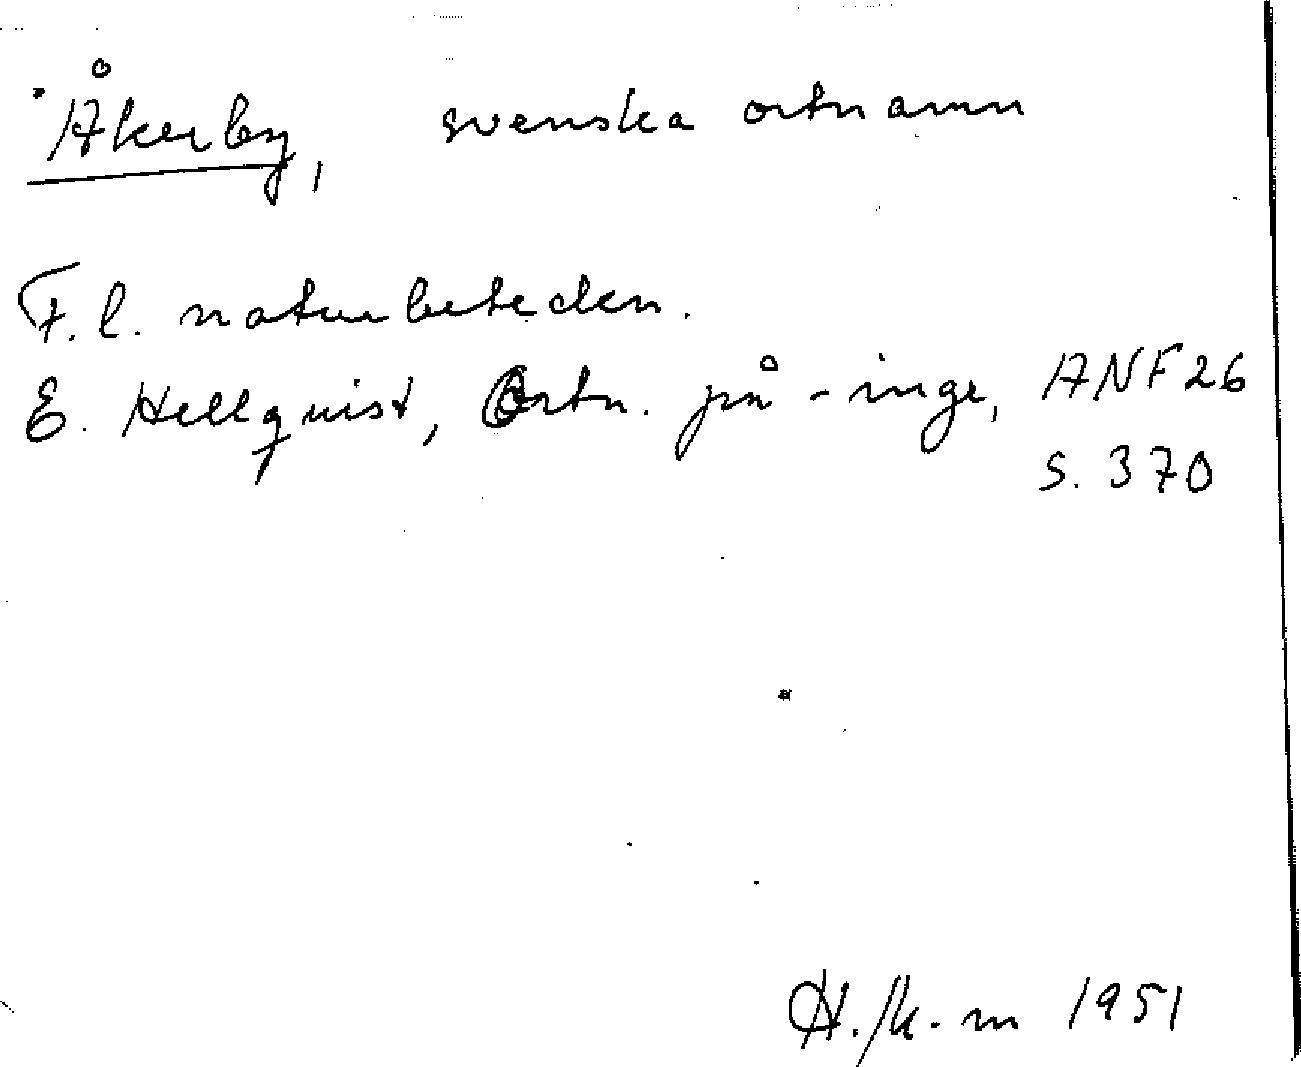 Åkerby, svenska ortnamn
F.l. naturbeteckn.
E. Hellquist, Ortn. på -inge, ANF 26
s. 370
H./k.-m 1951